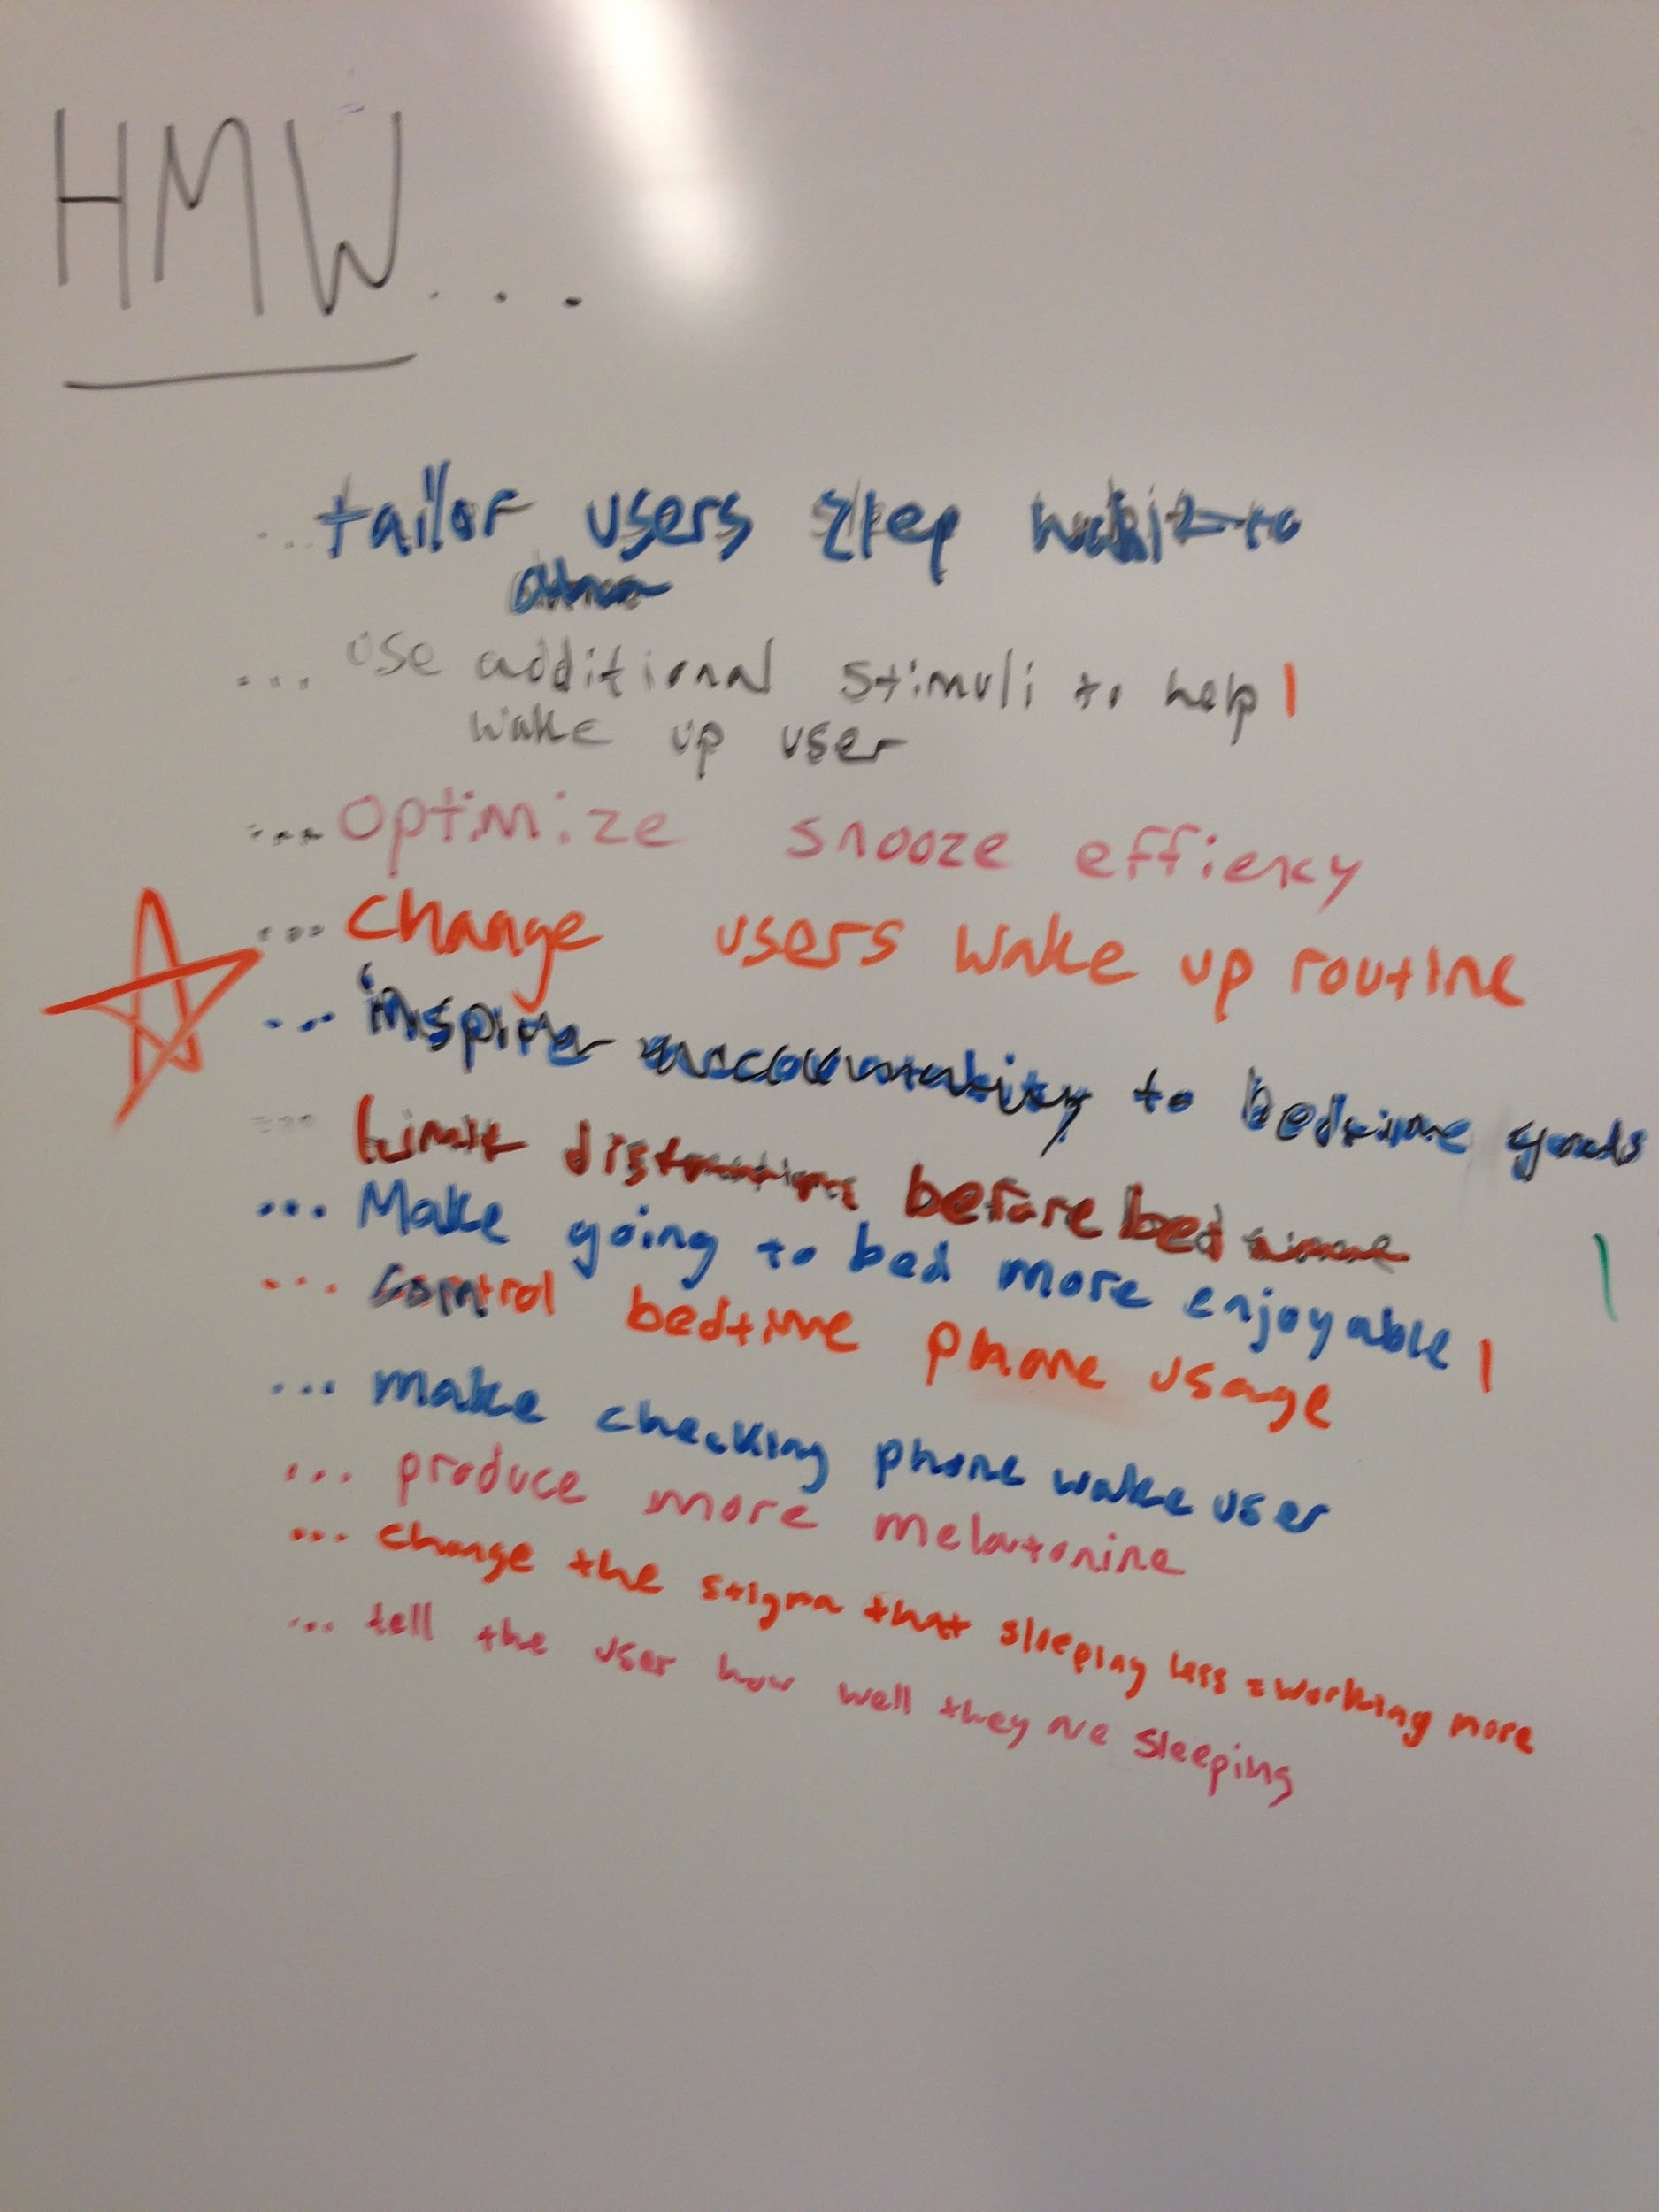 HMW...
...tailor users sleep habits to
...use additional stimuli to help
wake up user
...optimize snooze effiency
...change users wake up routine
...inspire accountability to bedtime goals
...Limit distractions before bed time
...Make going to bed more enjoyable
...control bedtime phone usage
...make checking phone wake user
...produce more melatonine
...change the stigma that sleeping less = working more
...tell the user how well they are sleeping